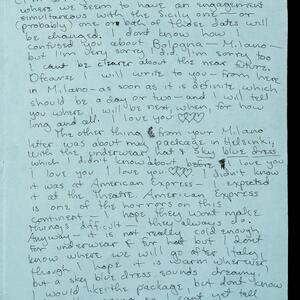 where we seem to have an engagement
simultaneous with the Sicily one - or
(probably) one or both of those dates will
be changed. I don't know how I
confused you about Bologna - Milano -
but I'm very sorry I did. I'm sorry too
I can't be clearer about the near future.
Ofcourse I will write to you - from here
in Milano - as soon as it is definite which
should be a day or two - and I will tell
you where I will be next, when, for how
long and all. I love you ♡♡♡
The other thing from your Milano
letter was about my package in Helsinki,
with the underwear but a sky blue dress
which I didn't know about before I love you
I love you I love you ♡♡♡ I didn't know
it was at American Express - I expected
it at the theatre. American Express
is one of the horrors on this
continent - I hope they won't make
things difficult - they always do.
Anyway - it is not really cold enough
for underwear & fur hat but I don't
know where we will go after Italy
though I hope it is warm wherever
but a sky blue dress sounds dreamy.
I would like the package but don't know
can't yet tell